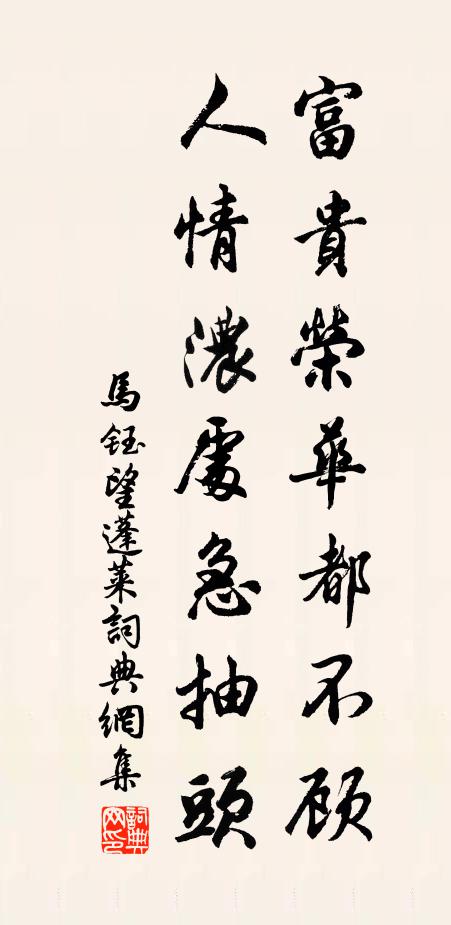 富貴榮華都不顾
人情濃處急抽頭
馬鈺望蓬萊詞典網集
詞典
网印